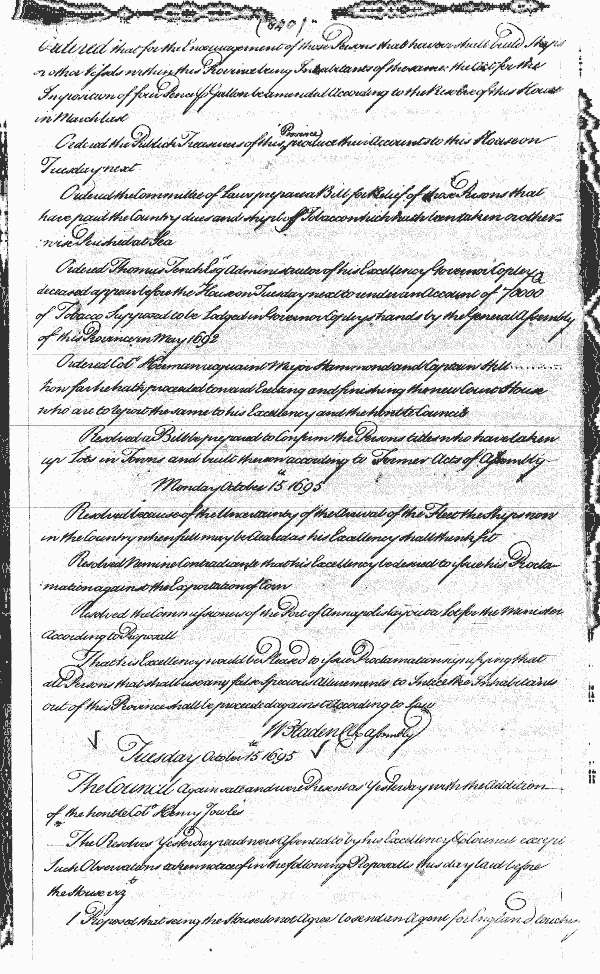 (820)
Ordered that for the Encouragement of those Persons that have or shall build Ships
or other Vessels within this Province being Inhabitants of the same the Act for the
Imposicon of four Pence p Gallon be amended According to the Resolve of this House
in March last
Ordered the Publick Treasurers of this Province produce their Accounts to this House on
Tuesday next
Ordered the Committee of Laws prepare a Bill for Relief of those Persons that
have paid the Country dues and shipt off Tobacco which hath been taken or other=
wise Perished at Sea
Ordered Thomas Tench Esqr Administrator of his Excellency Governor Copley
deceased appear before the House on Tuesday next to render an Account of 70000
of Tobacco Supposed to be Lodged in Governor Copleys hands by the General Assembly
of this Province in May 1692
Ordered Colo Herman acquaint Major Hammond and Captain Hill
how far he hath proceeded toward Erecting and finishing the new Court House
who are to report the same to his Excellency and the honble Councill
Resolved a Bill be prepared to Confirm the Persons titles who have taken
up Lots in Towns and built thereon according to Former Acts of Assembly
Monday October 15th 1695
Resolved because of the Uncertainty of the Arrival of the Fleet the Ships now
in the Country when full may be Cleared as his Excellency shall think fit
Resolved Nemine Contradicente that his Excellency be desired to issue his Procla=
mation against the Exportation of Corn
Resolved the Commissioners of the Port of Annapolis lay out a Lot for the Minister
According to Proposall
That his Excellency would be Pleased to issue Proclamation signifying that
all Persons that shall use any false Specious Allurements to Intice the Inhabitants
out of this Province shall be proceeded against according to Law
W Bladen Cl Assembly
Tuesday October 15th 1695
The Council again satt and were Present as Yesterday with the Addition
of the honble Colo Henry Jowles
The Resolves Yesterday read were Assented to by his Excellency & Council except
Such Observations taken notice of in the following Proposalls this day laid before
the House vizt
1 Proposed that seeing the House do not Agree to send an Agent for England touching